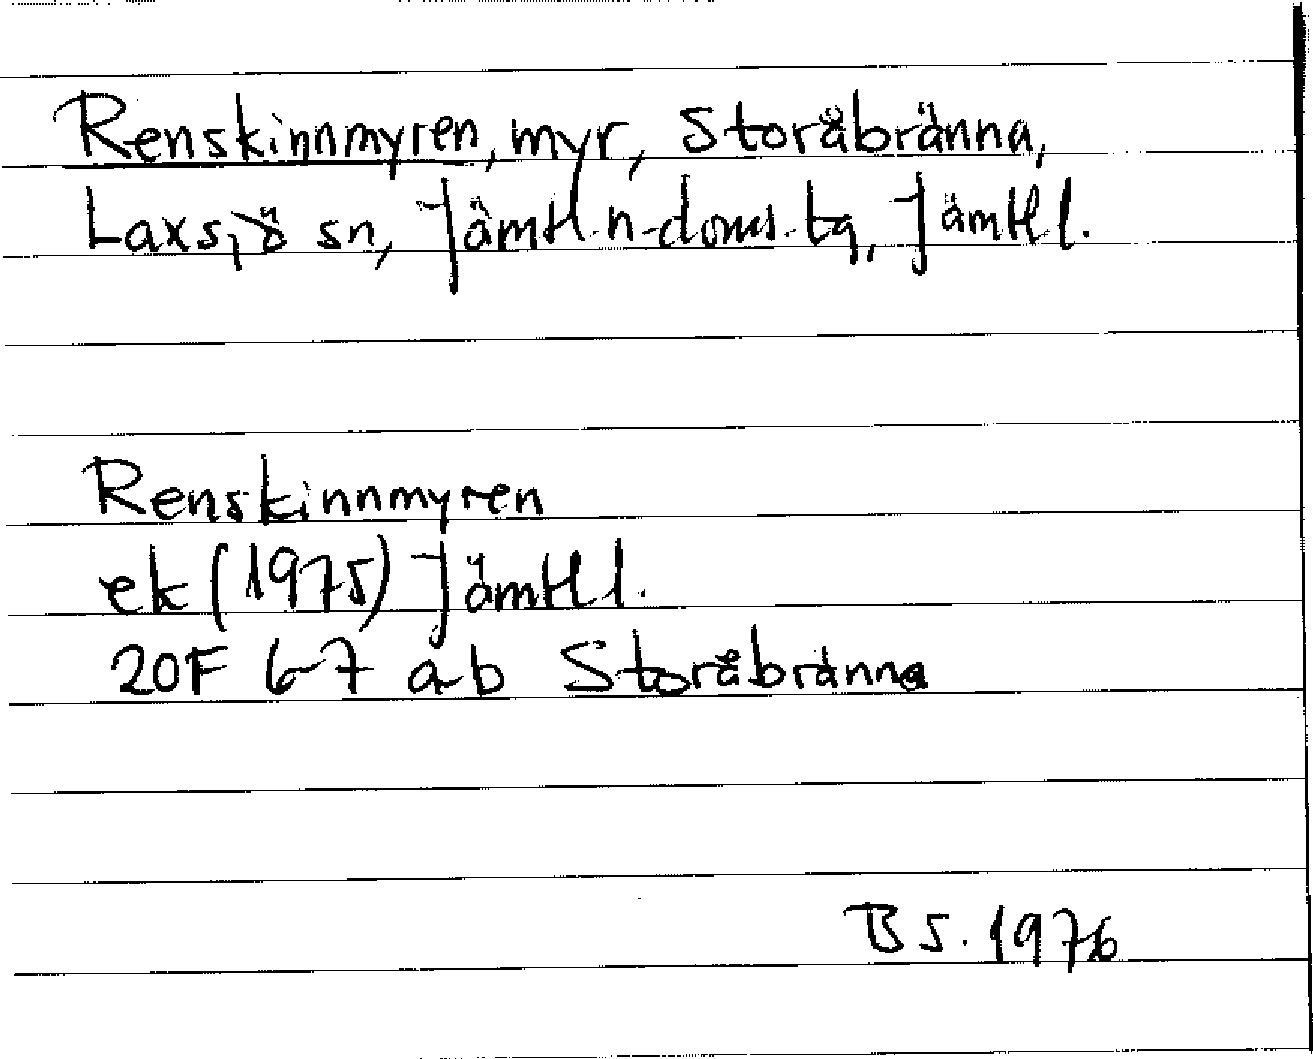 Renskinnmyren, myr, Storåbränna,
Laxsjö sn, Jämtl. n. doms. tg, Jämtl.
Renskinnmyren
ek (1975) Jämtl.
20F 6-7 a-b Storåbränna
BS. 1976